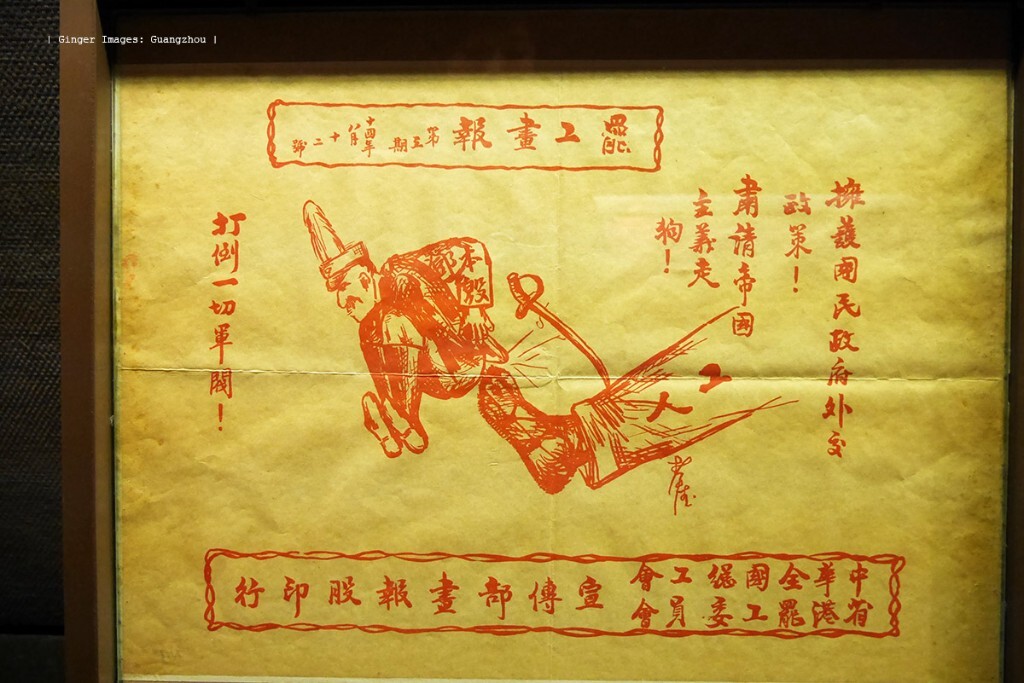 | Ginger Images: Guangzhou |
罷工畫報 第五期 十四年八月十二號
擁護國民政府外交
政策！
肅清帝國
主義走
狗！
工人
打倒一切軍閥！
中華全國總工會
省港罷工委員會
宣傳部畫報股印行